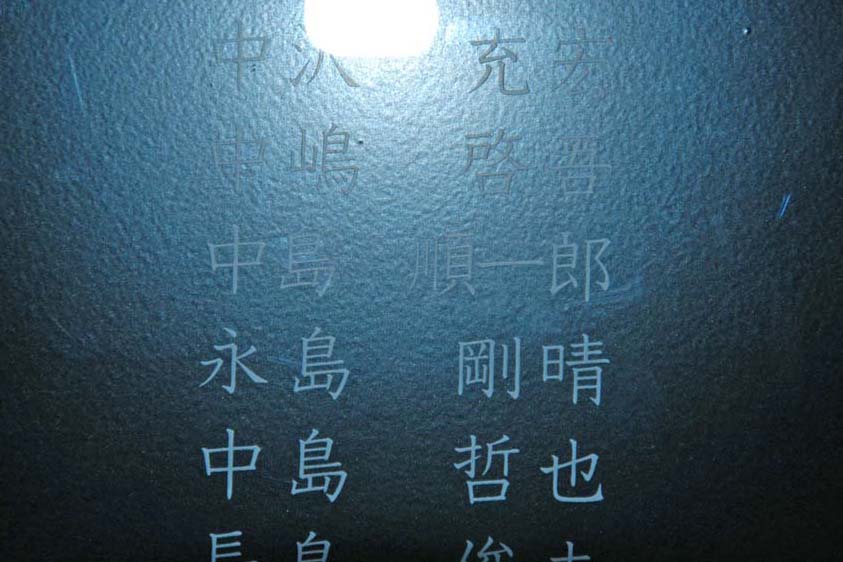 中沢 充宏
中嶋 啓吾
中島 順一郎
永島 剛晴
中島 哲也
長島